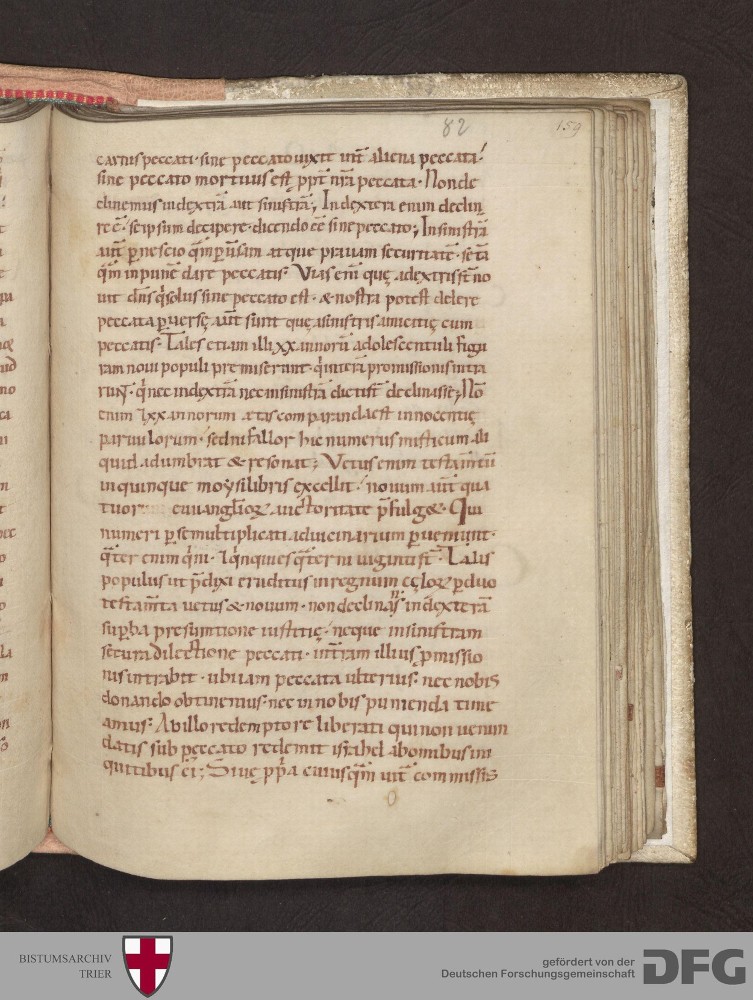 82 159
carnis peccati · sine peccato vixit int̄ aliena peccata ·
sine peccato mortuus est ppt̄ nr̄a peccata · Non de
clinemus in dextrā aut sinistrā ; In dextera enim declin
re ē · se ipsum decipere · dicendo eē sine peccato ; In sinistrā
aut̄ per nescio qm̄ pūsam atque pravam securitatē · se tā
qm̄ inpune dare peccatis · Vias enī quę a dextris st̄ no
vit dn̄s q̄ solus sine peccato est · & nostra potest delere
peccata puersę aut̄ sunt quę a sinistris amicitię cum
peccatis · Tales etiam illi xx annorū adolescentuli figu
ram novi populi premiserunt · q̄ in terā promissionis intra
runt · q̄ nec in dextrā nec in sinistrā dicti st̄ declinasse ; Nō
enim xx annorum ętas comparanda est innocentię
parvulorum · sed ni fallor hic numerus misticum ali
quid adumbrat & resonat ; Vetus enim testam̄tū
in quinque moysi libris excellit · novum aut̄ qua
tuor evvangl̄ior auctoritate p̄fulg& · Qui
numeri p se multiplicati ad vicinarium perveniunt ·
q̄ter enim q̄ni · l q̄nquies q̄terni viginti st̄ · Talis
populus ut p̄dixi eruditus in regnum cęlor p duo
testam̄ta vetus & novum · non declinans in dexterā
supba presumtione iustitię · neque in sinistram
secura dilectione peccati · in t̄ram illius pmissio
nis intrabit · ubi iam peccata ulterius · nec nobis
donando obtinemus · nec in nobis punienda time
amus · Ab illo redemptore liberati qui non venum
datis sub peccato redemit israhel ab omnibus ini
quitibus ei ; Sive pp̄a cuiusqm̄ vit̄ commissis
BISTUMSARCHIV
TRIER
gefördert von der
Deutschen Forschungsgemeinschaft
DFG